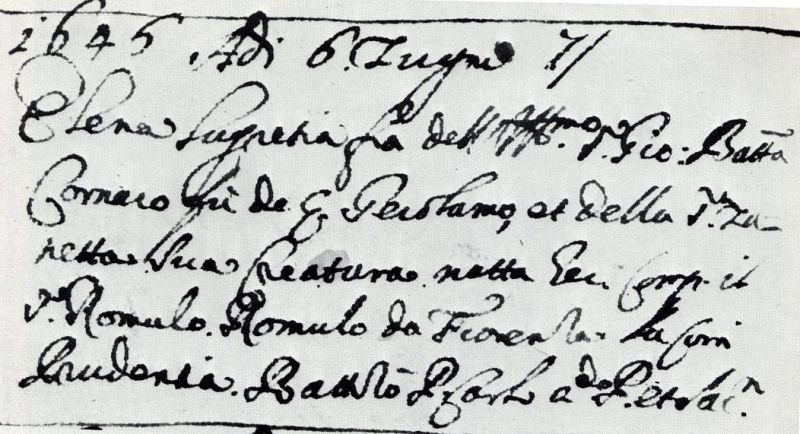 1646 Adi 6 Zugno 7/
Elena Lugretia fia dell Ill.mo S.r Gio: Batta
Cornaro fù de E. Gerolamo, et della S.a Za-
netta sua Creatura natta Comp. il
S.r Romulo Romulo da Fiorenza la Com
Prudentia. Battezò P. Carlo